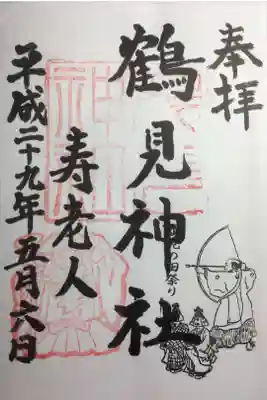 奉拝
鶴見神社
寿老人
平成二十九年五月六日
の田祭り